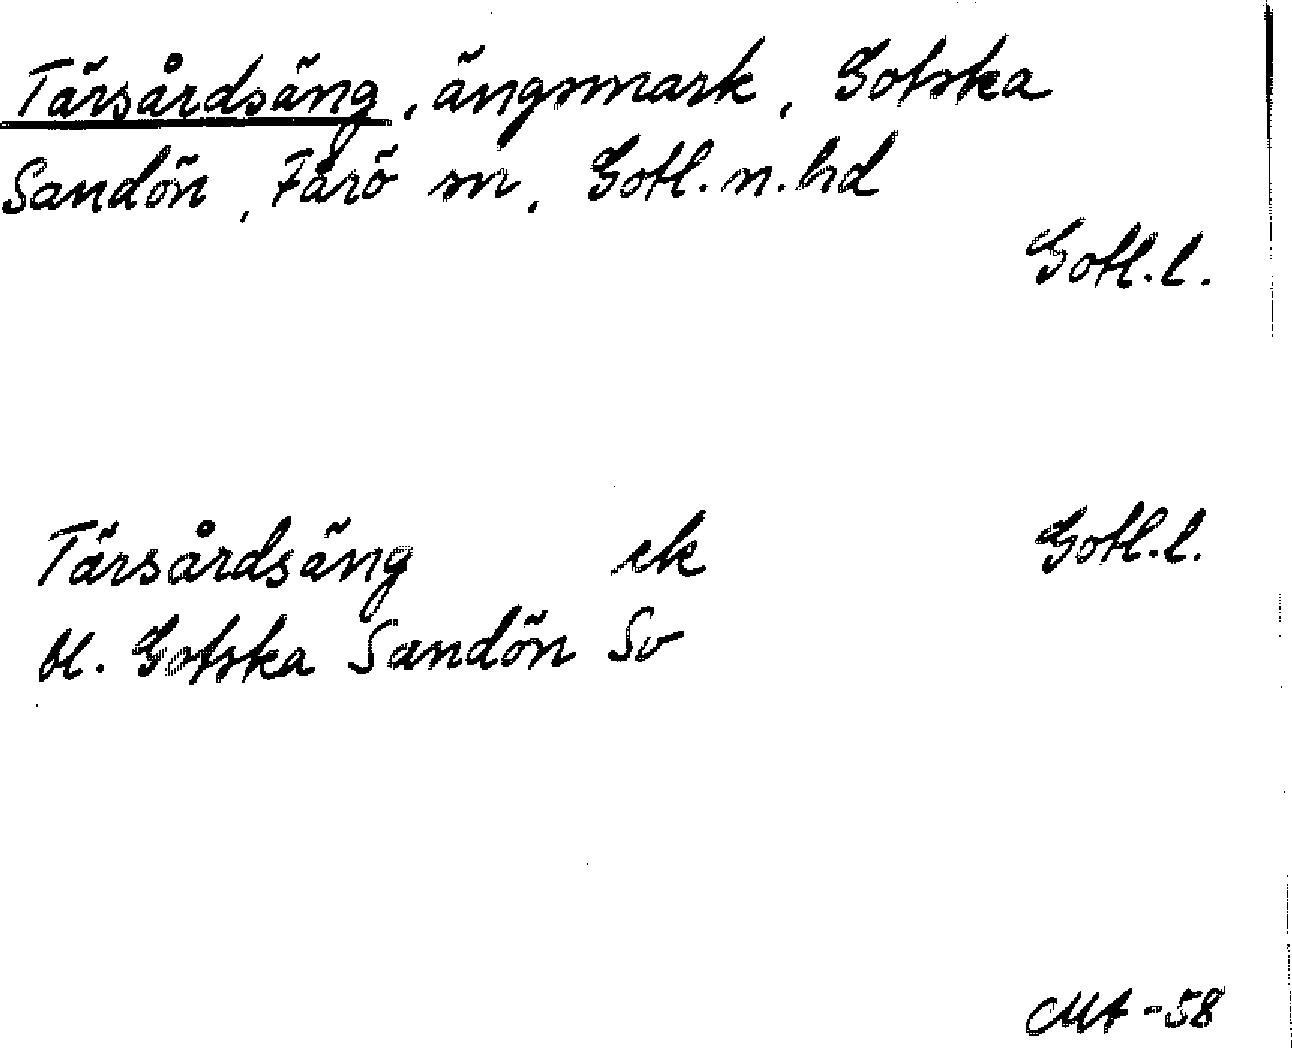 Tärsårdsäng, ängsmark, Gotska
Sandön, Fårö sn, Gotl.n.hd
Gotl.l.
Tärsårdsäng ek Gotl.l.
bl. Gotska Sandön So
MA-58